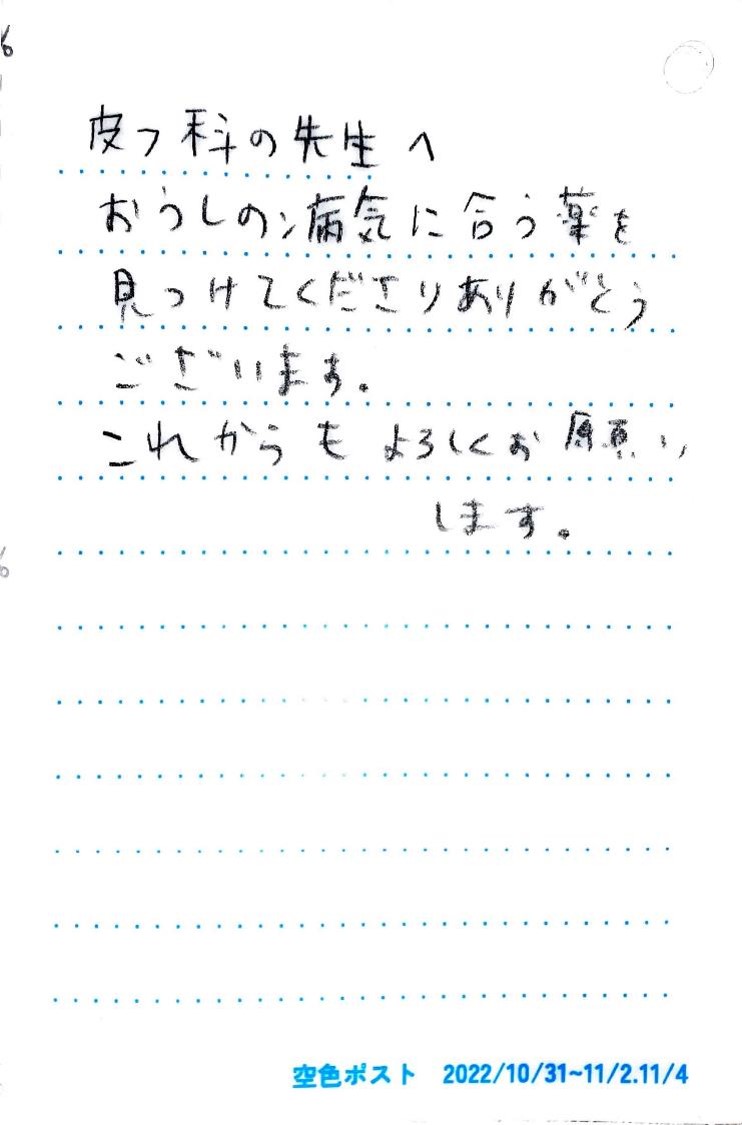 皮フ科の先生へ
おうしの病気に合う薬を
見つけてくださりありがとう
ございます。
これからもよろしくお願い
します。
空色ポスト 2022/10/31~11/2.11/4